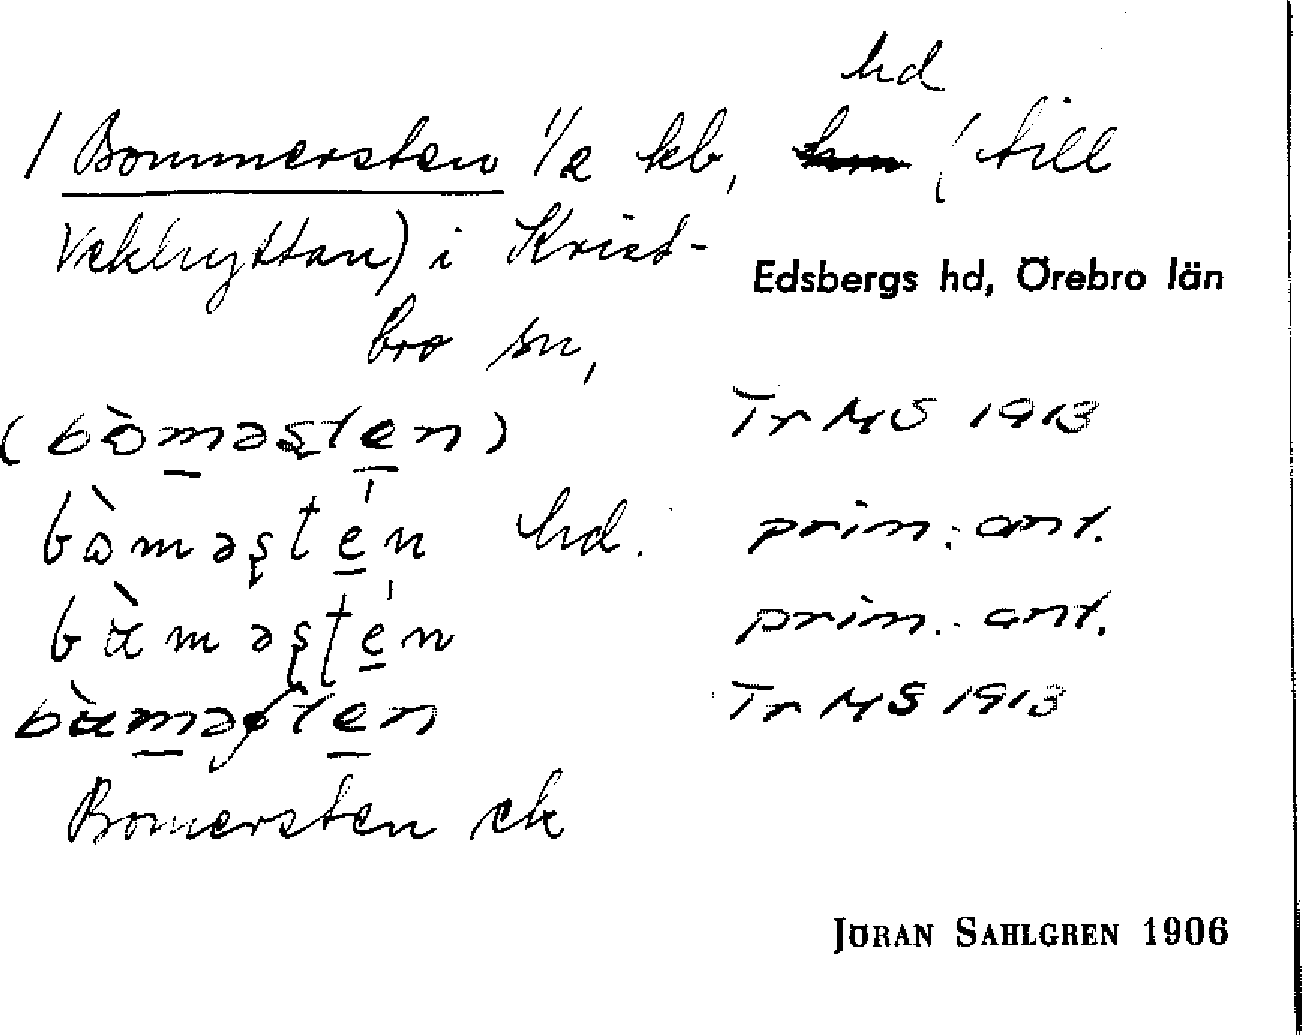 hd
/ Bommersten 1/2 kb, (till
Vekhyttan) i Krist-
Edsbergs hd, Örebro län
bro sn,
(bòməs̨ten) Tr MS 1913
bòməs̨tén hd. prim. ant.
bæ̀məs̨tén prim. ant.
bæ̀məsten Tr MS 1913
Bomersten ek
JÖRAN SAHLGREN 1906